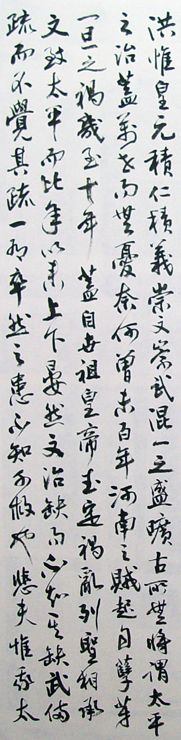 洪惟皇元積仁積義崇文崇武混一之盛曠古所無將謂太平
之治蓋萬世而無憂奈何曾未百年河南之賊起自孽芽
一旦之禍幾至十年蓋自世祖皇帝戡定禍亂列聖相承
文致太平而比年以來上下晏然文治缺而不知其缺武備
疏而不覺其疏一有卒然之患不知所救也悲夫惟我太